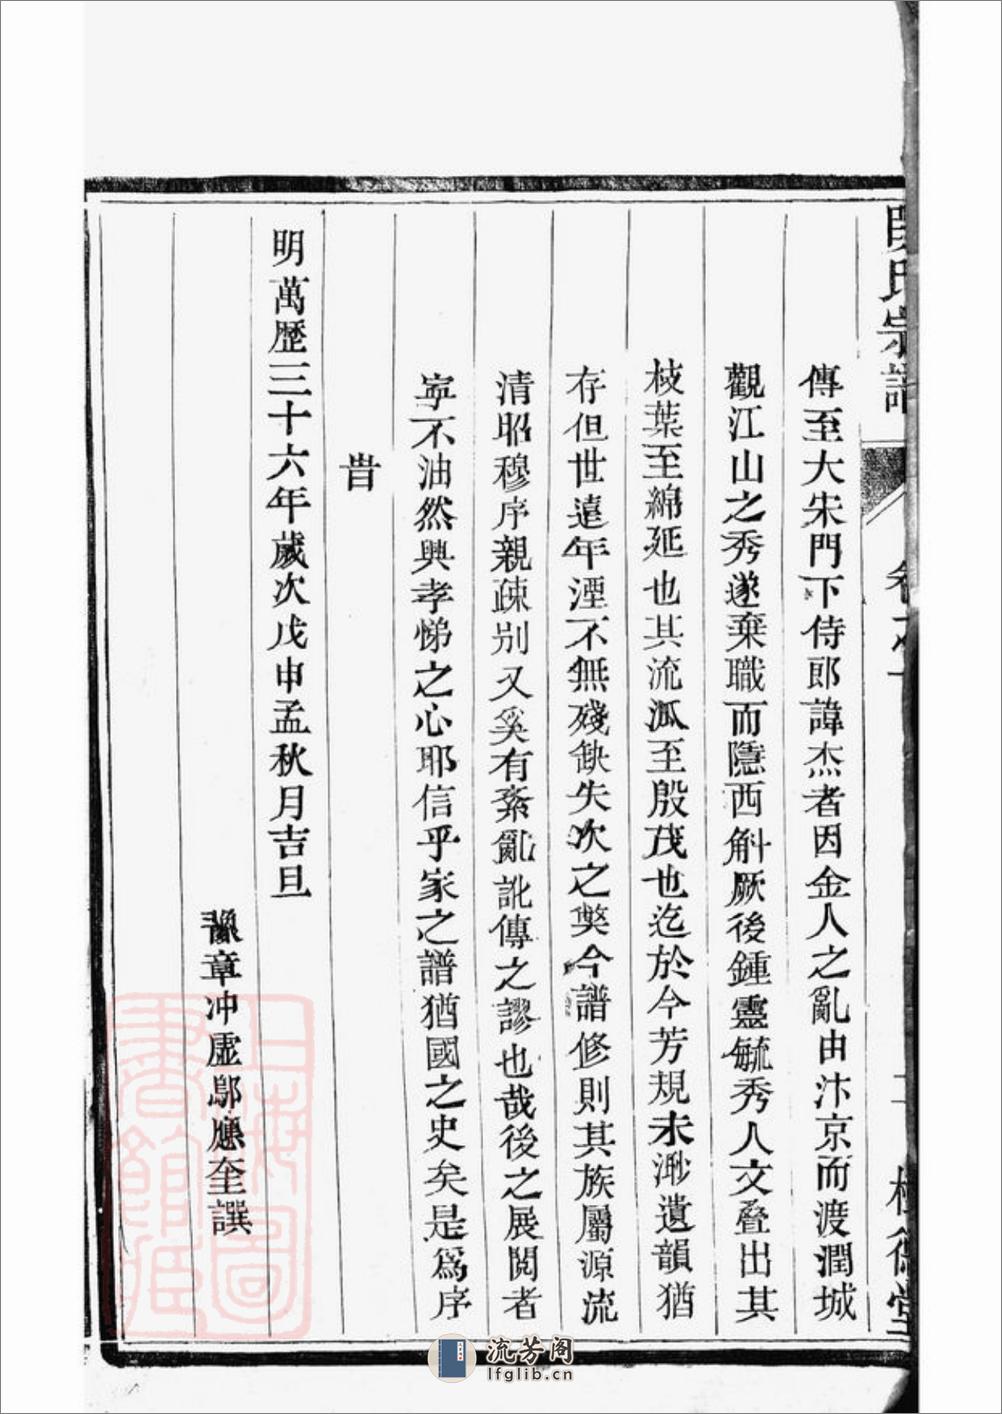 氏宗譜
傳至大宋門下侍郎諱杰者因金人之亂由汴京而渡潤城
觀江山之秀遂棄職而隱西斛厥後鍾靈毓秀人文叠出其
枝葉至綿延也其流派至殷茂也迄於今芳規未渺遺韻猶
存但世遠年湮不無殘缺失次之獘今譜修則其族屬源流
清昭穆序親疎别又奚有紊亂訛傳之謬也哉後之展閱者
寧不油然興孝悌之心耶信乎家之譜猶國之史矣是爲序
旹
明萬歷三十六年歲次戊申孟秋月吉旦
豫章冲虛鄔應奎譔
上海圖
書館藏
流芳阁
lfglib.cn